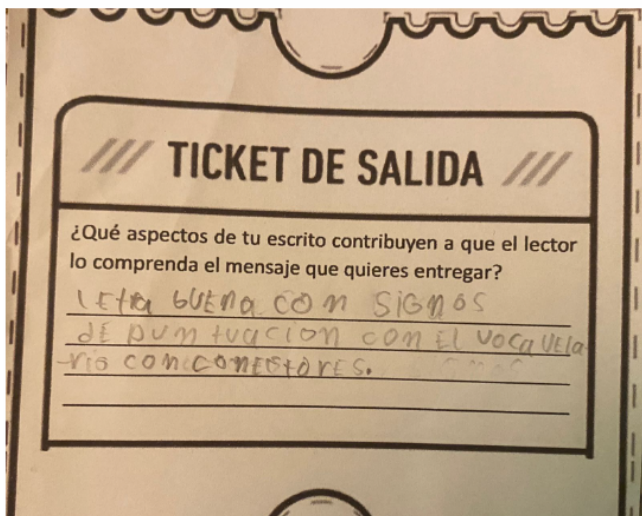 TICKET DE SALIDA
¿Qué aspectos de tu escrito contribuyen a que el lector
lo comprenda el mensaje que quieres entregar?
letra buena con signos
de puntuacion con el vocavuela
rio con conectores.